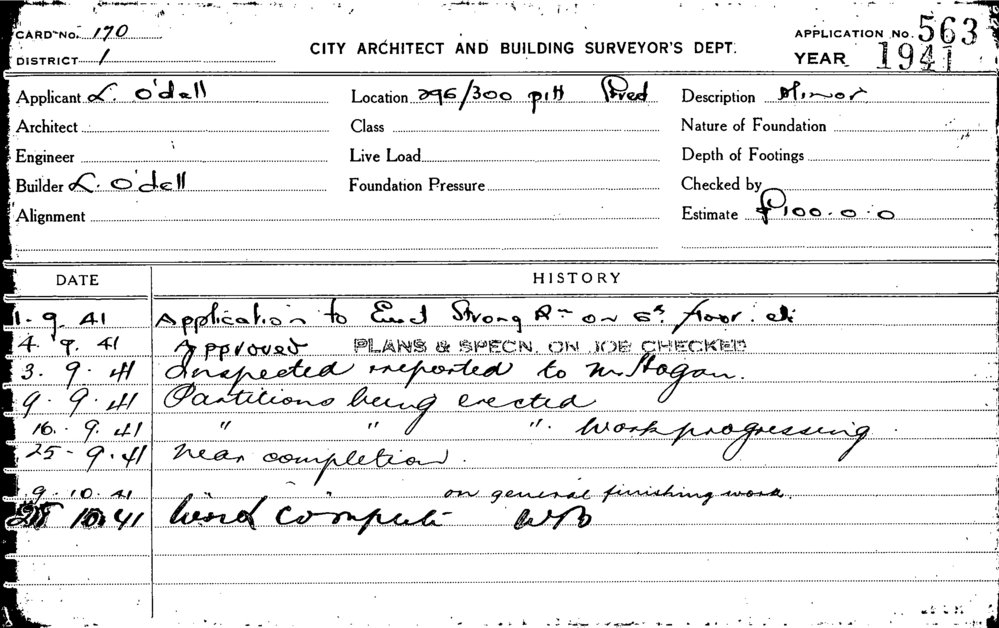 CARD No. 170
DISTRICT 1
CITY ARCHITECT AND BUILDING SURVEYOR'S DEPT.
APPLICATION No. 563
YEAR 1941
Applicant L. O'dell Location 296/300 pitt Street Description Minor
Architect Class Nature of Foundation
Engineer Live Load Depth of Footings
Builder L. O'dell Foundation Pressure Checked by
Alignment Estimate £100.0.0
DATE HISTORY
1.9.41 Application to Erect Strong Rm on 6th floor. etc
4.9.41 Approved PLANS & SPECN. ON JOB CHECKED
3.9.41 Inspected reported to Mr Hogan.
9.9.41 Partitions being erected
16.9.41 " " " Work progressing
25-9.41 near completion.
9.10.41 " " on general finishing work.
10.41 Work complete WB